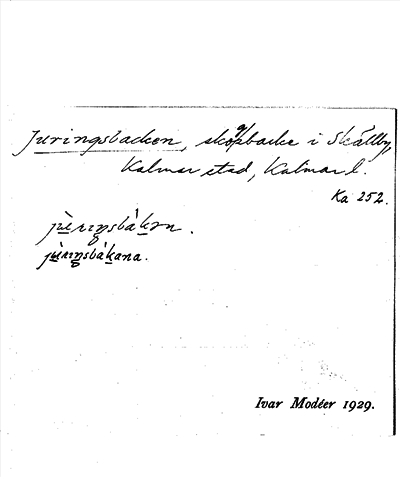 Juringsbacken, skogsbacke i Skällby,
Kalmar stad, Kalmar l.
Ka 252.
jùriŋsbàkən.
jùriŋsbàkana.
Ivar Modéer 1929.